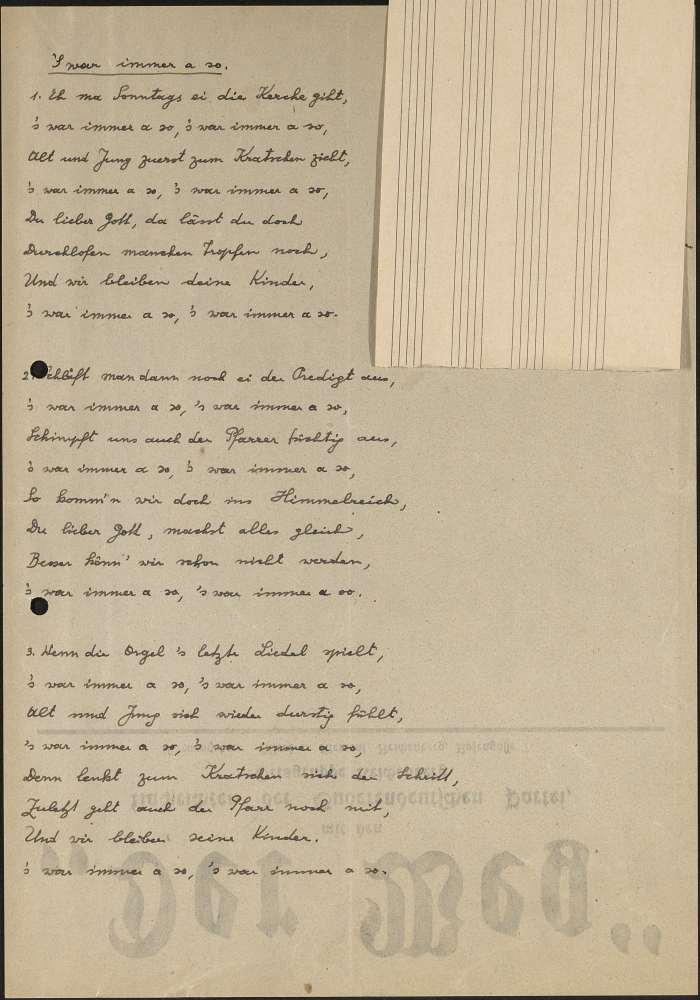 'S war immer a so.
1. Eh ma Sonntags ei die Kerche giht,
's war immer a so, 's war immer a so,
Alt und Jung zuerst zum Kratschen zieht,
's war immer a so, 's war immer a so,
Du lieber Gott, da lässt du doch
Durchlofen manchen Tropfen noch,
Und wir bleiben deine Kinder,
's war immer a so, 's war immer a so.
2. Schläft man dann noch ei der Predigt aus,
's war immer a so, 's war immer a so,
Schimpft uns auch der Pfarrer tüchtig aus,
's war immer a so, 's war immer a so,
So komm'n wir doch ins Himmelreich,
Du lieber Gott, machst alles gleich,
Besser könn' wir schon nicht werden,
's war immer a so, 's war immer a so.
3. Wenn die Orgel 's letzte Liedel spielt,
's war immer a so, 's war immer a so,
Alt und Jung sich wieder durstig fühlt,
's war immer a so, 's war immer a so,
Denn lenkt zum Kratschen sich der Schritt,
Zuletzt geht auch der Pfarr noch mit,
Und wir bleiben seine Kinder.
's war immer a so, 's war immer a so.
Sudetendeutschen Partei,
mit den
"Der Weg"